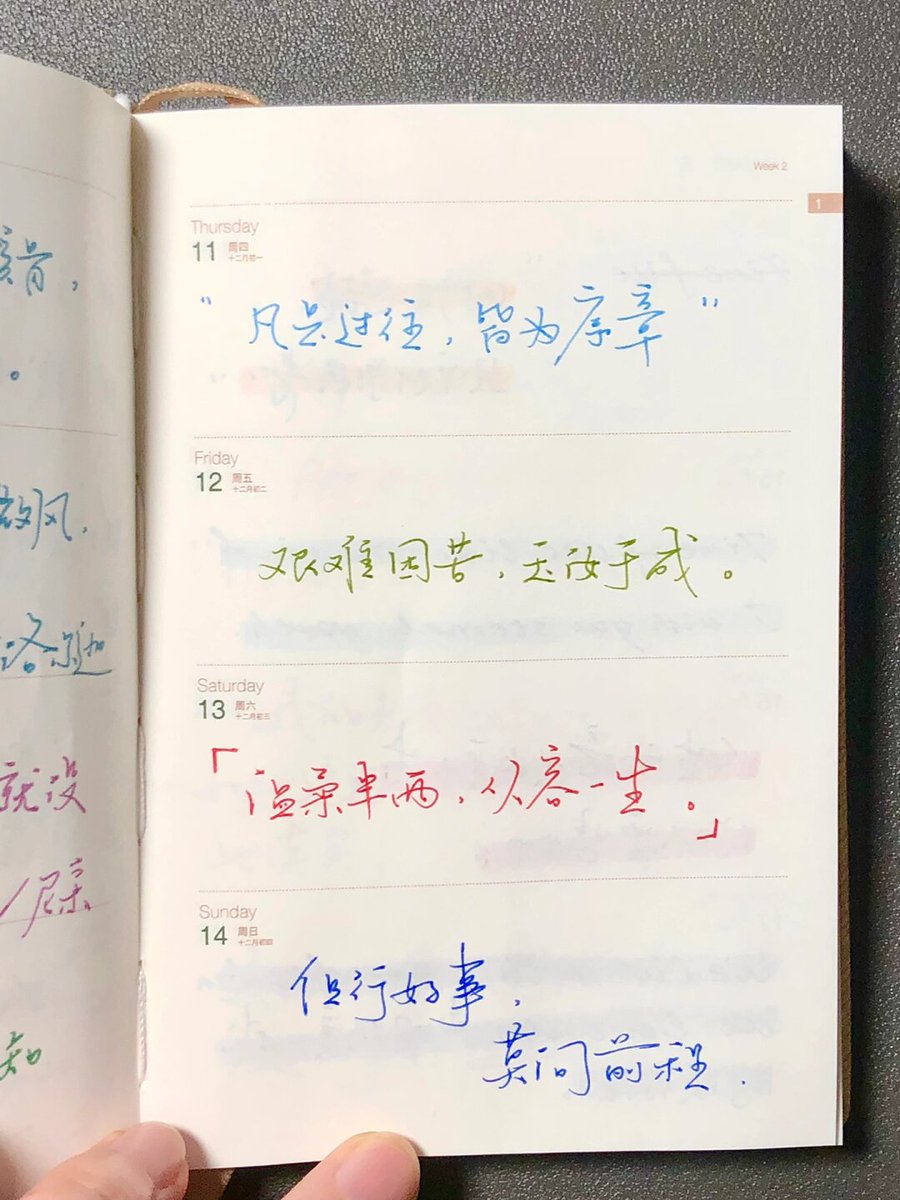 就没
知
Week 2
1
Thursday
11 周四
十二月初一
“凡是过往，皆为序章”
Friday
12 周五
十二月初二
艰难困苦，玉汝于成。
Saturday
13 周六
十二月初三
「温柔半两，从容一生。」
Sunday
14 周日
十二月初四
但行好事，
莫问前程.